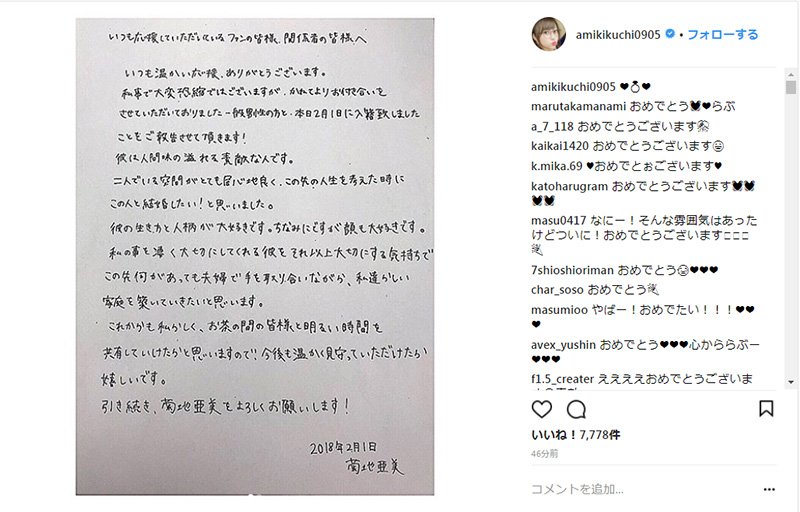 いつも応援していただいているファンの皆様、関係者の皆様へ
いつも温かい応援、ありがとうございます。
私事で大変恐縮ではございますが、かねてよりお付き合いを
させていただいておりました一般男性の方と、本日2月1日に入籍致しました
ことをご報告させて頂きます!
彼は人間味の溢れる素敵な人です。
二人でいる空間がとても居心地良く、この先の人生を考えた時に
この人と結婚したい!と思いました。
彼の生き方と人柄が大好きです。ちなみにですが顔も大好きです。
私の事を凄く大切にしてくれる彼をそれ以上大切にする気持ちで
この先何があっても夫婦で手を取り合いながら、私達らしい
家庭を築いていきたいと思います。
これからも私らしく、お茶の間の皆様と明るい時間を
共有していけたらと思いますので!今後も温かく見守っていただけたら
嬉しいです。
引き続き、菊地亜美をよろしくお願いします!
2018年2月1日
菊地亜美
amikikuchi0905 • フォローする
amikikuchi0905 ♥💍♥
marutakamanami おめでとう♥♥らぶ
a_7_118 おめでとうございます
kaikai1420 おめでとうございます
k.mika.69 ♥おめでとぉございます♥
katoharugram おめでとうございます
masu0417 なにー!そんな雰囲気はあった
けどついに!おめでとうございます
7shioshioriman おめでとう♥♥♥
char_soso おめでとう
masumioo やばー!おめでたい!!!♥♥
♥
avex_yushin おめでとう♥♥♥心かららぶー
♥♥♥
f1.5_creater ええええおめでとうございま
いいね!7,778件
46分前
コメントを追加...